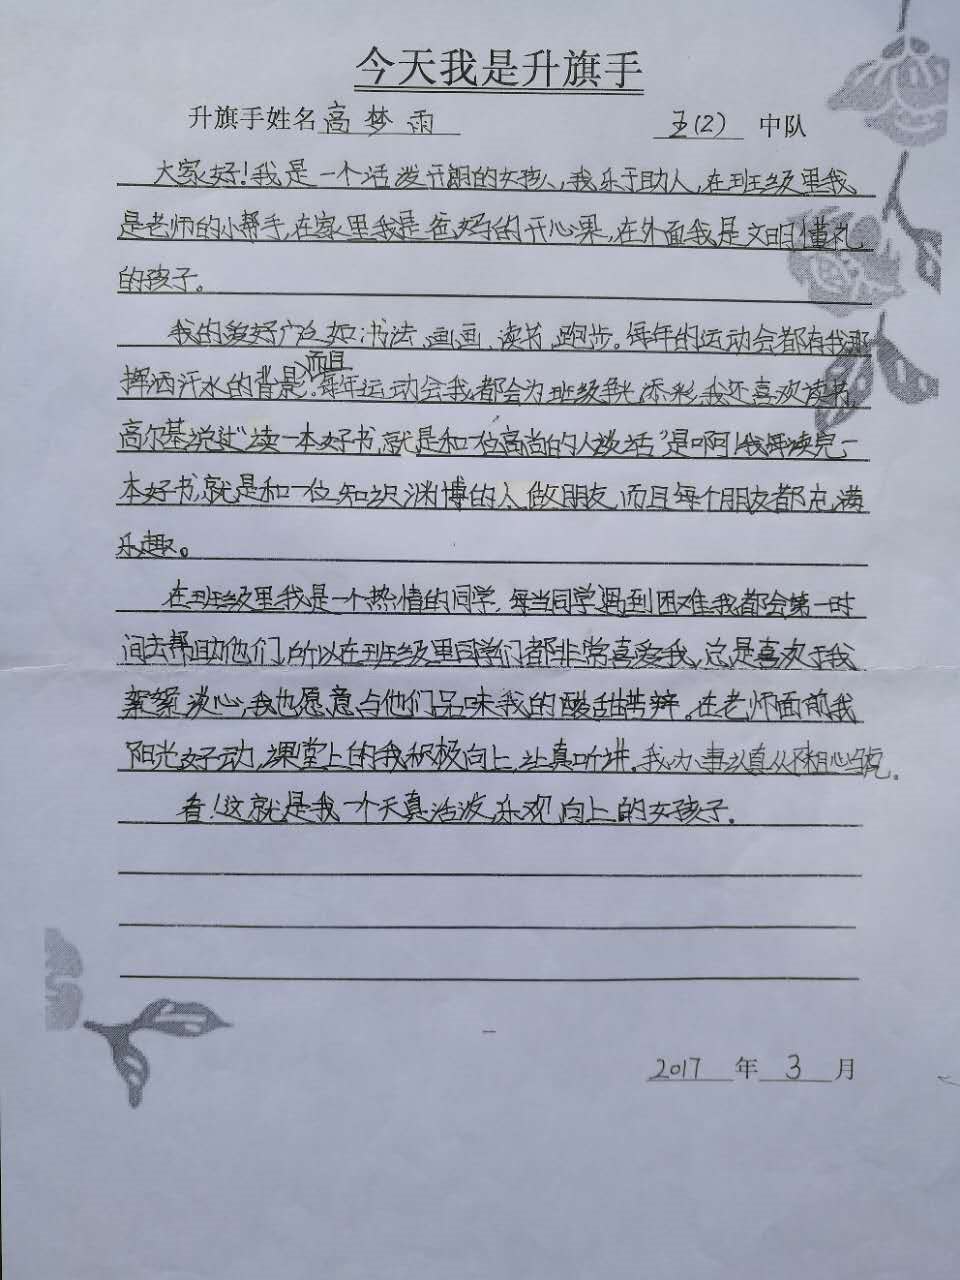 今天我是升旗手
升旗手姓名 高梦雨 五(2) 中队
大家好！我是一个活泼开朗的女孩,我乐于助人,在班级里我
是老师的小帮手,在家里我是爸妈的开心果,在外面我是文明懂礼
的孩子。
我的爱好广泛如:书法、画画、读书、跑步。每年的运动会都有我那
挥洒汗水的背景,而且每年运动会我都会为班级争光添彩,我还喜欢读书,
高尔基说过“读一本好书,就是和一位高尚的人谈话”是啊！我每读完一
本好书,就是和一位知识渊博的人做朋友,而且每个朋友都充满
乐趣。
在班级里我是一个热情的同学,每当同学遇到困难我都会第一时
间去帮助他们,所以在班级里同学们都非常喜爱我,总是喜欢于我
絮絮谈心,我也愿意与他们品味我的酸甜苦辣。在老师面前我
阳光好动,课堂上的我积极向上,认真听讲.我办事认真从不粗心马虎.
看！这就是我一个天真活波,乐观向上的女孩子.
2017 年 3 月